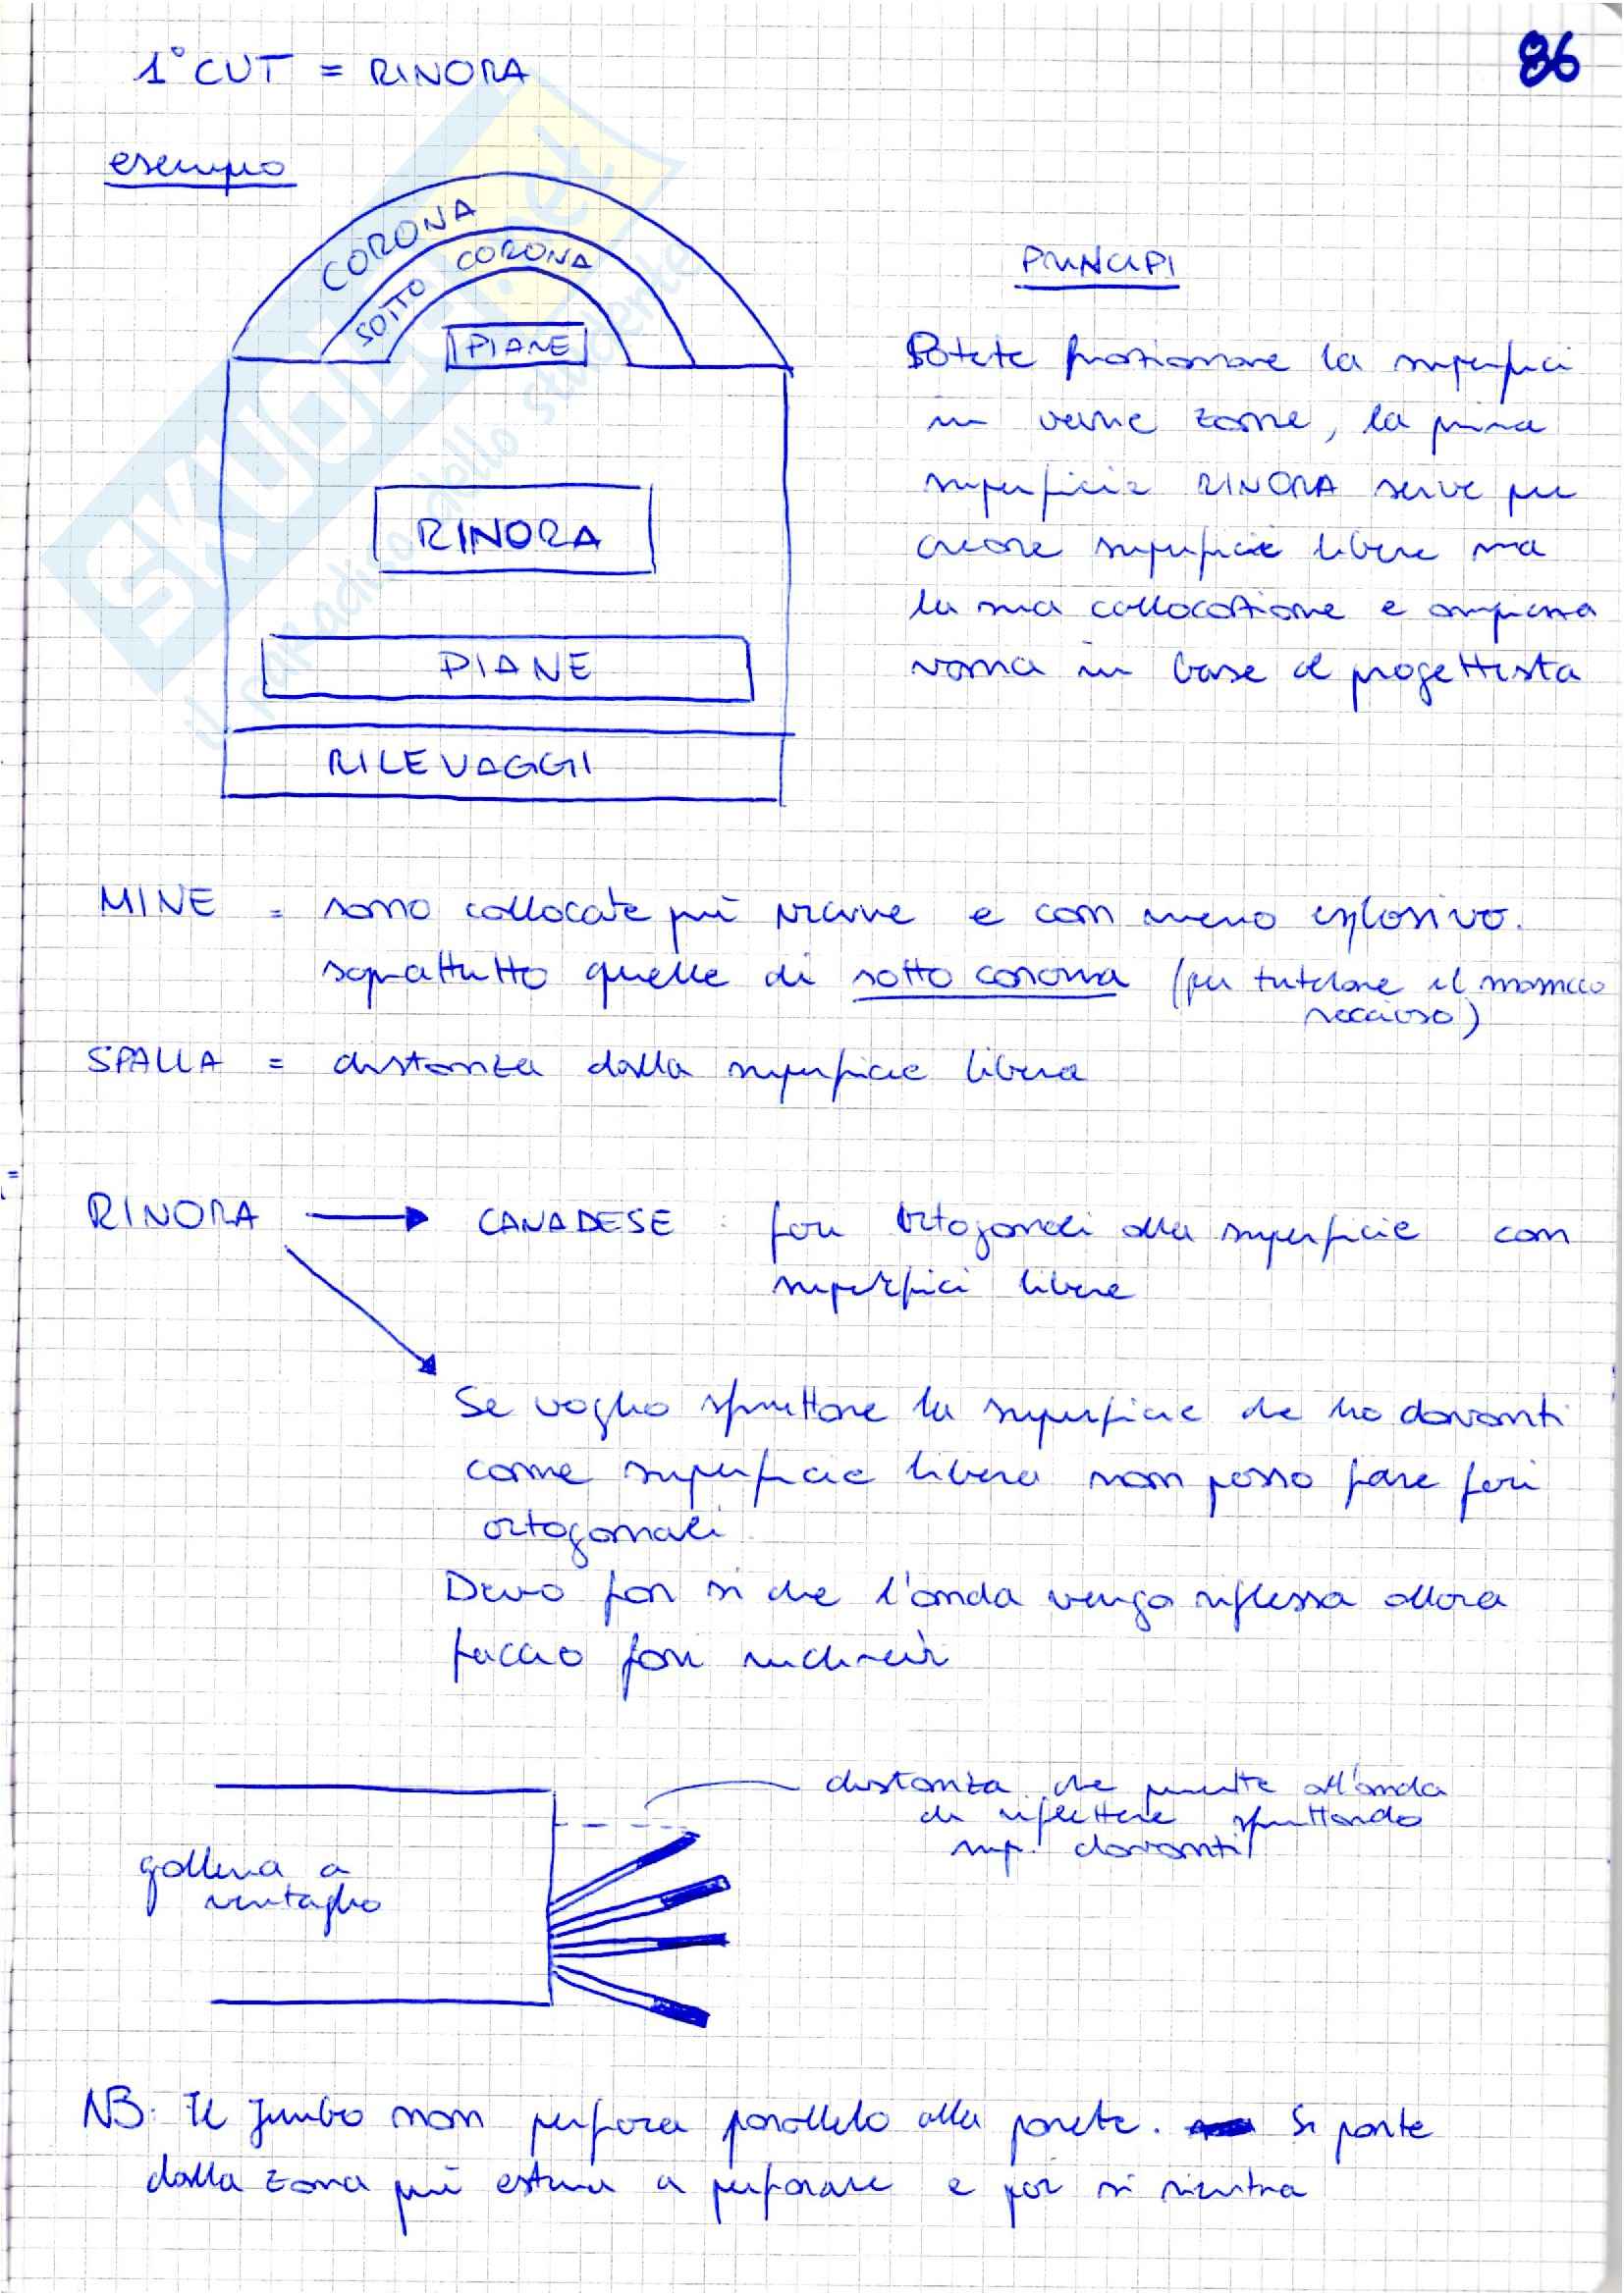 86
1° CUT = RINORA
esempio
CORONA
SOTTO CORONA
PIANE
RINORA
PIANE
RILEVAGGI
PRINCIPI
Potete frazionare la superfici
in varie zone, la prima
superficie RINORA serve per
creare superficie libere ma
la sua collocazione e ampiezza
varia in base al progettista
MINE = sono collocate più vicine e con meno esplosivo.
soprattutto quelle di sotto corona (per tutelare il massiccio
roccioso)
SPALLA = distanza dalla superficie libera
RINORA → CANADESE : fori ortogonali alla superficie con
superfici libere
Se voglio sfruttare la superficie che ho davanti
come superficie libera non posso fare fori
ortogonali.
Devo far sì che l'onda venga riflessa allora
faccio fori inclinati
distanza che permette all'onda
di riflettere sfruttando
sup. davanti
galleria a
ventaglio
NB: Il Jumbo non perfora parallelo alla parete. Si parte
dalla zona più esterna a perforare e poi si rientra
SKUOLA.net
il paradiso dello studente